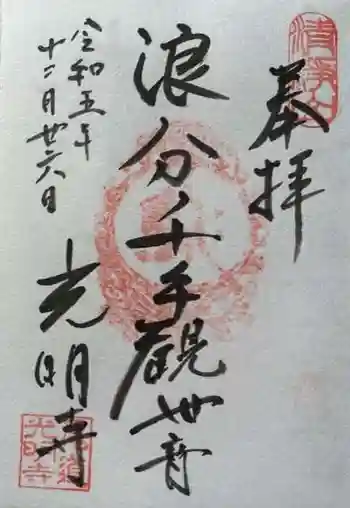 奉拝
浪分ノ千手観世音
光明寺
令和五年
十二月廿六日